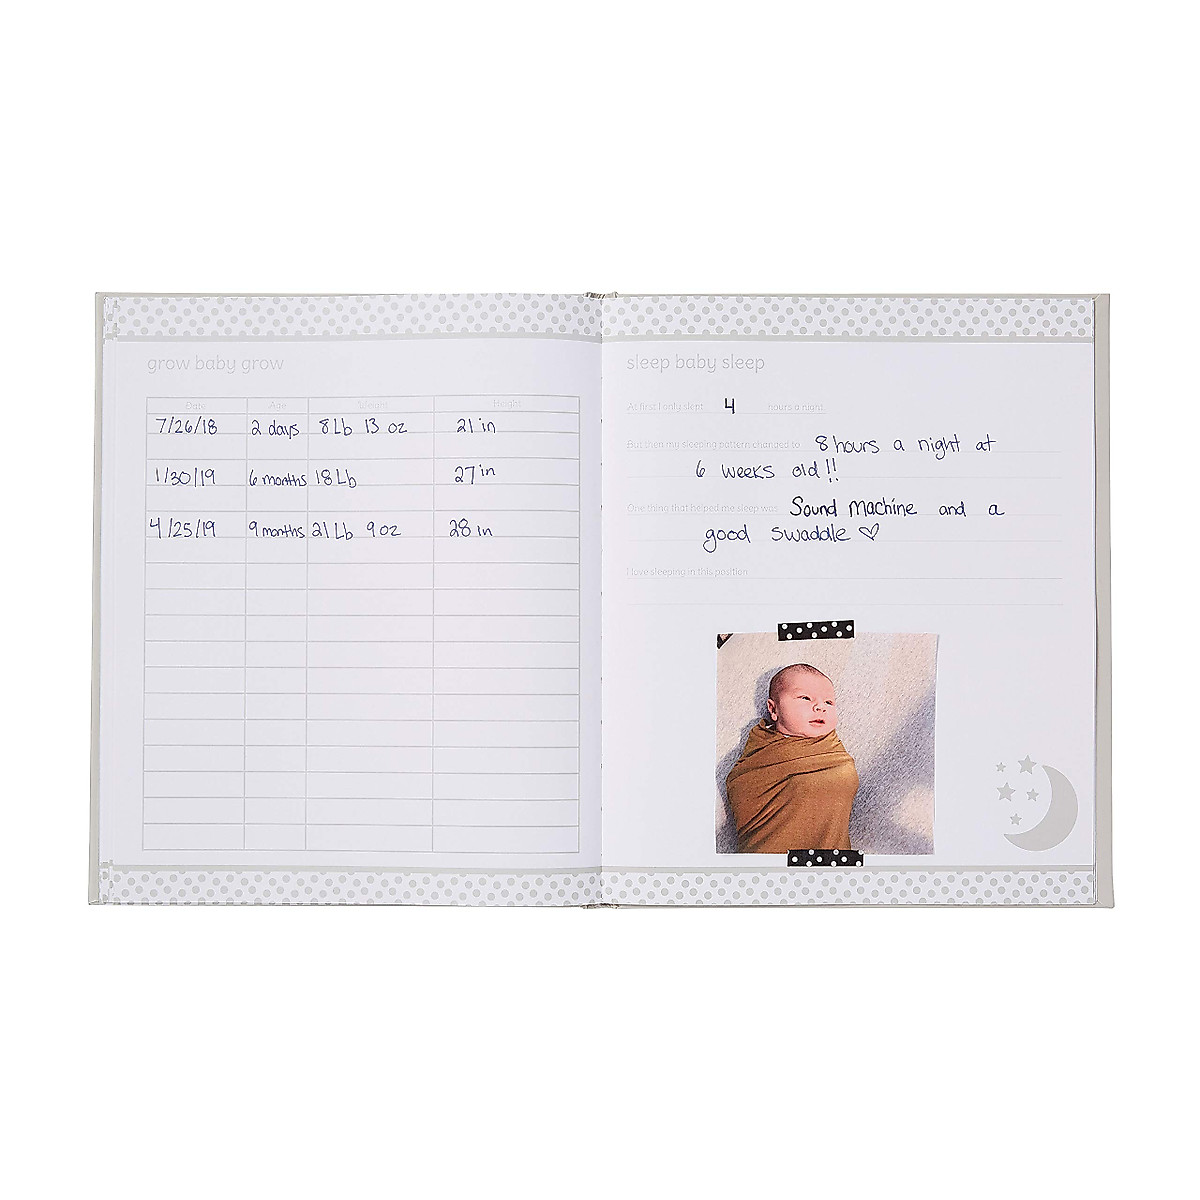 grow baby grow
Date Age Weight Height
7/26/18 2 days 8 Lb 13 oz 21 in
1/30/19 6 months 18 Lb 27 in
4/25/19 9 months 21 Lb 9 oz 28 in
sleep baby sleep
At first I only slept 4 hours a night
But then my sleeping pattern changed to 8 hours a night at
6 weeks old!!
One thing that helped me sleep was Sound machine and a
good swaddle ♡
I love sleeping in this position